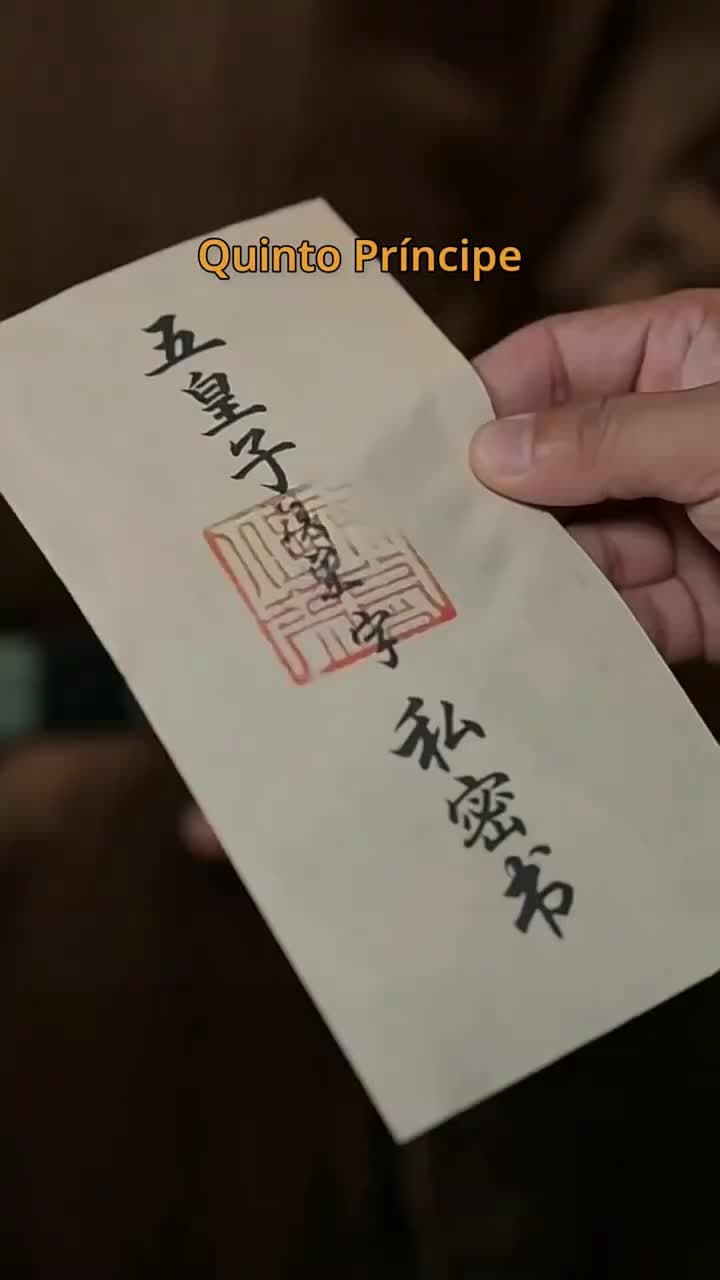 Quinto Príncipe
五皇子
私密书